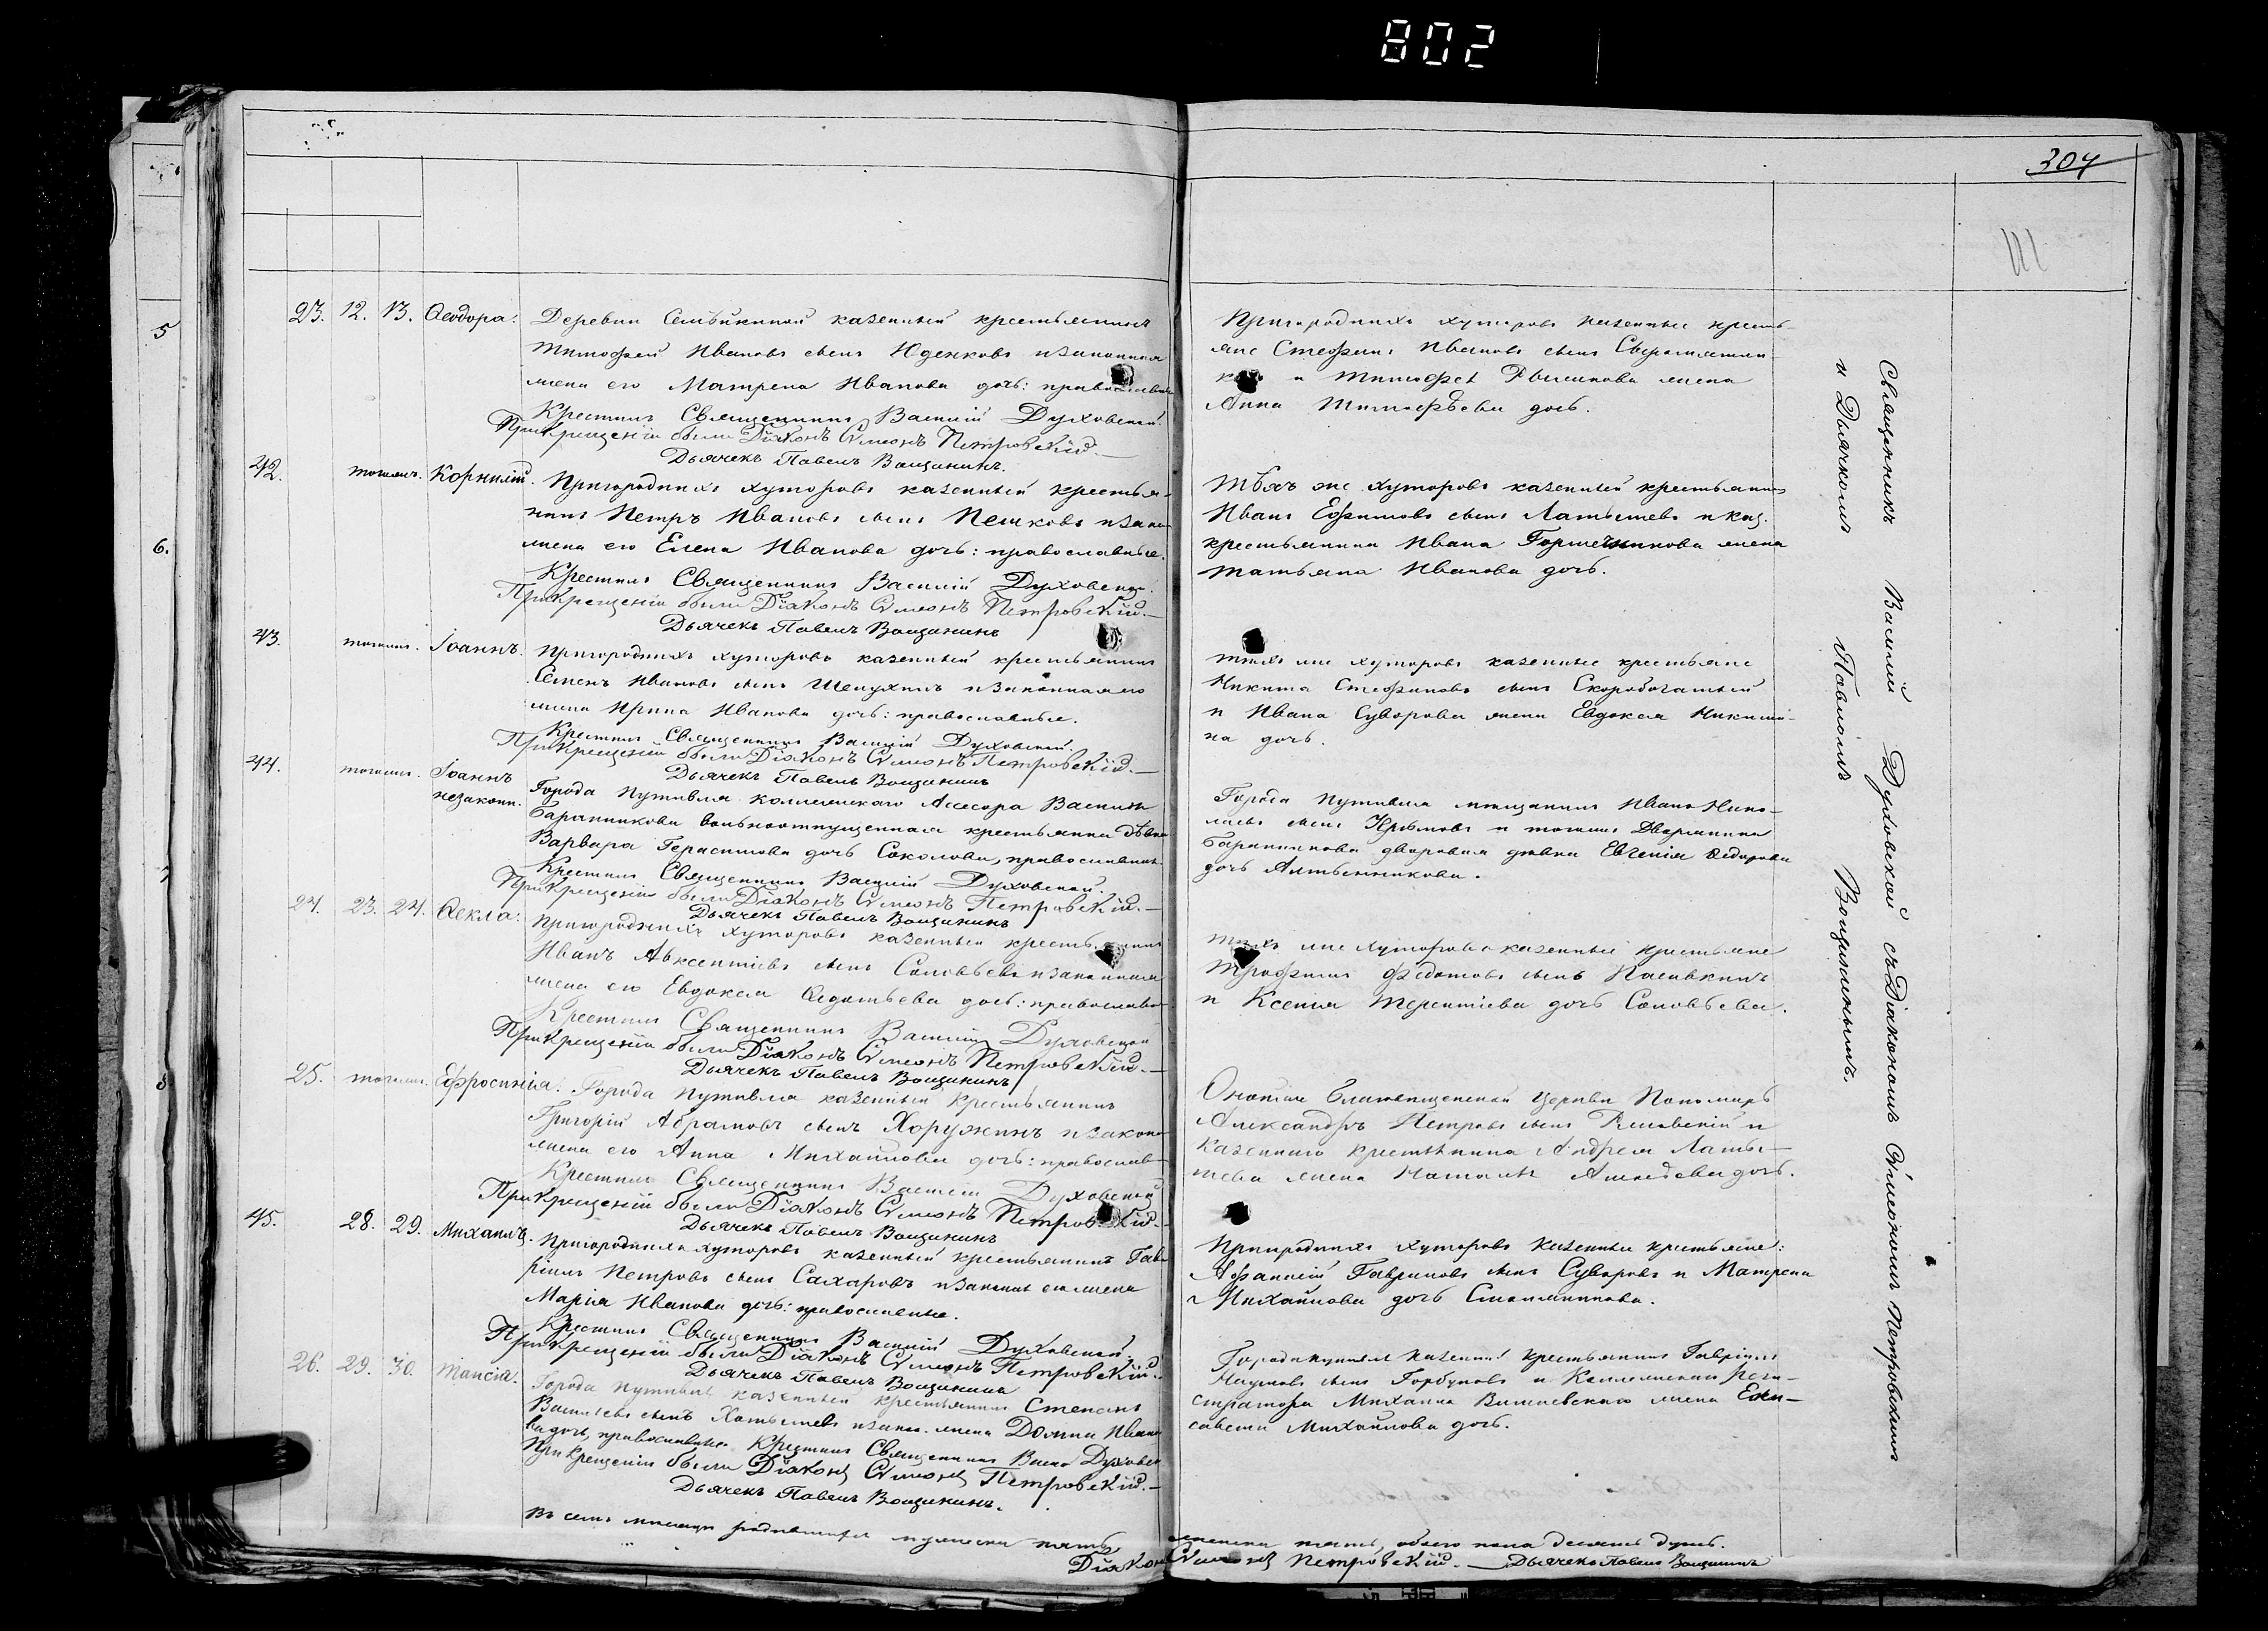 802
304
III
5
6.
23. 12. 13. Ѳеодора. Деревни казенный крестьянинъ
Тимофей Ивановъ сынъ Юденковъ и законная
жена его Матрена Ивановa дочь: православные
Крестилъ Священникъ Василій Духовской.
При крещеніи были Діяконъ Сѵмеонъ Петровскій.—
Дьячекъ Павелъ Вощининъ.
Пригородныхъ хуторовъ казенные кресть-
яне Стефанъ Ивановъ сынъ
и жена
Анна Тимофѣева дочь.
42. тогожъ. Корнилій. Пригородныхъ хуторовъ казенный крестья-
нинъ Петръ Ивановъ сынъ Пешковъ и закон
жена его Елена Иванова дочь: православные.
Крестилъ Священникъ Василій Духовской.
При крещеніи были Діяконъ Сѵмеонъ Петровскій.—
Дьячекъ Павелъ Вощининъ
Тѣхъ же хуторовъ казенный крестьянинъ
Иванъ Ефимовъ сынъ Латышевъ и каз.
крестьянина Ивана Горшечникова жена
Татьяна Иванова дочь.
43. тогожъ. Іоаннъ. Пригородныхъ хуторовъ казенный крестьянинъ
Семенъ Ивановъ сынъ Шелухинъ и законная его
жена Ирина Иванова дочь: православные.
Крестилъ Священникъ Василій Духовской.
При крещеніи были Діяконъ Сѵмеонъ Петровскій.—
Дьячекъ Павелъ Вощининъ
тѣхъ же хуторовъ казенные крестьяне
Никита Стефановъ сынъ Скоробогатый
и Ивана Суворова жена Евдокея Никити-
на дочь.
44. тогожъ. Іоаннъ
незаконн. Города Путивля коллежскаго Ассесора Василія
Баранникова вольноотпущенная крестьянка дѣвка
Варвара Герасимова дочь Соколова, православная.
Крестилъ Священникъ Василій Духовской.
При крещеніи были Діяконъ Сѵмеонъ Петровскій.—
Дьячекъ Павелъ Вощининъ
Города Путивля мещанинъ Иванъ Нико-
лаевъ сынъ Крымовъ и тогожъ Дворянина
Баранникова дворовая дѣвка Евгенія Ѳедорова
дочь
24. 23. 24. Ѳекла. Пригородныхъ хуторовъ казенный крестьянинъ
Иванъ Авксентіевъ сынъ Соловьевъ и законная
жена его Евдокея Ѳедотьева дочь: православн
Крестилъ Священникъ Василій Духовской
При крещеніи были Діяконъ Сѵмеонъ Петровскій.—
Дьячекъ Павелъ Вощининъ
тѣхъ же хуторовъ казенные крестьяне
Трофимъ Федотовъ сынъ
и Ксенія Терентіева дочь Соловьева.
25. тогожъ. Ефросинія. Города Путивля казенный крестьянинъ
Григорій Абрамовъ сынъ Хоружинъ и закон
жена его Анна Михайлова дочь: православ
Крестилъ Священникъ Василій Духовской
При крещеніи были Діяконъ Сѵмеонъ Петровскій.—
Дьячекъ Павелъ Вощининъ
Благовещенской Церкви Пономарь
Александръ Петровъ сынъ и
казеннаго крестьянина Андрея Латы-
шева жена дочь.
45. 28. 29. Михаилъ. Пригородныхъ хуторовъ казенный крестьянинъ Гав
ріилъ Петровъ сынъ Сахаровъ и законн его жена
Марія Иванова дочь: православные.
Крестилъ Священникъ Василій Духовской.
При крещеніи были Діяконъ Сѵмеонъ Петровскій.
Дьячекъ Павелъ Вощининъ
Пригородныхъ хуторовъ казенные крестьяне:
Афанасій Гавриловъ сынъ Суворовъ и Матрена
Михайлова дочь
26. 29. 30. Таисія. Города Путивля казенный крестьянинъ Степанъ
Васильевъ сынъ и закон. жена Домна Ивано
ва дочь, православные. Крестилъ Священникъ Васил Духовск
При крещеніи были Діяконъ Сѵмеонъ Петровскій.—
Дьячекъ Павелъ Вощининъ.
Города Путивля казенный крестьянинъ Гавріилъ
Наумовъ сынъ Горбуновъ и Коллежскаго Реги-
стратора Михаила Вишневскаго жена Ели-
савета Михайлова дочь.
Въ семъ месяце родившихся мужеска пять, женска пять, обоего пола десять душъ.
Діяконъ Сѵмеонъ Петровскій.— Дьячекъ Павелъ Вощининъ
Священникъ Василій Духовской съ Діакономъ Сѵмеономъ Петровскимъ
и Дьячкомъ Павломъ Вощининымъ.